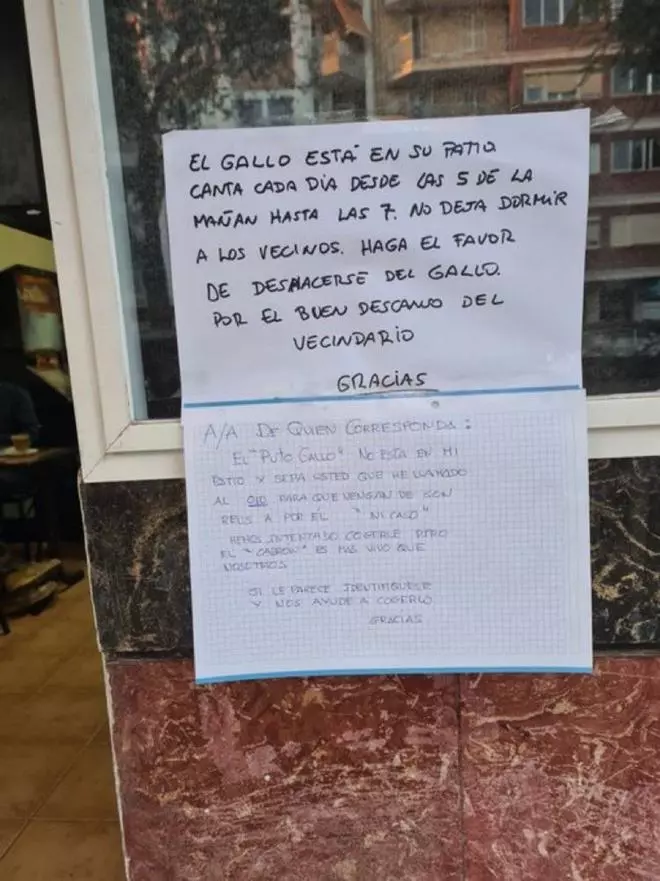 EL GALLO ESTÁ EN SU PATIO
CANTA CADA DÍA DESDE LAS 5 DE LA
MAÑAN HASTA LAS 7. NO DEJA DORMIR
A LOS VECINOS. HAGA EL FAVOR
DE DESHACERSE DEL GALLO.
POR EL BUEN DESCANSO DEL
VECINDARIO
GRACIAS
A/A DE QUIEN CORRESPONDA:
EL "PUTO GALLO" NO ESTA EN MI
PATIO Y SEPA USTED QUE HE LLAMADO
AL 010 PARA QUE VENGAN DE SON
REUS A POR ÉL "NI CASO"
HEMOS INTENTADO COGERLE PERO
EL "CABRON" ES MAS VIVO QUE
NOSOTROS
SI LE PARECE IDENTIFIQUESE
Y NOS AYUDE A COGERLO
GRACIAS